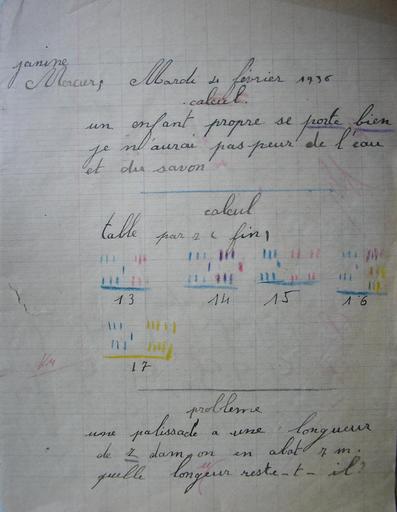 janine
Mercier, Mardi 4 février 1936
calcul.
un enfant propre se porte bien
je n'aurai pas peur de l'eau
et du savon
calcul
table par 2 ( fin,
13 14 15 16
17
probleme
une palissade a une longueur
de dam, on en abat 7 m.
quelle longeur reste-t-il?